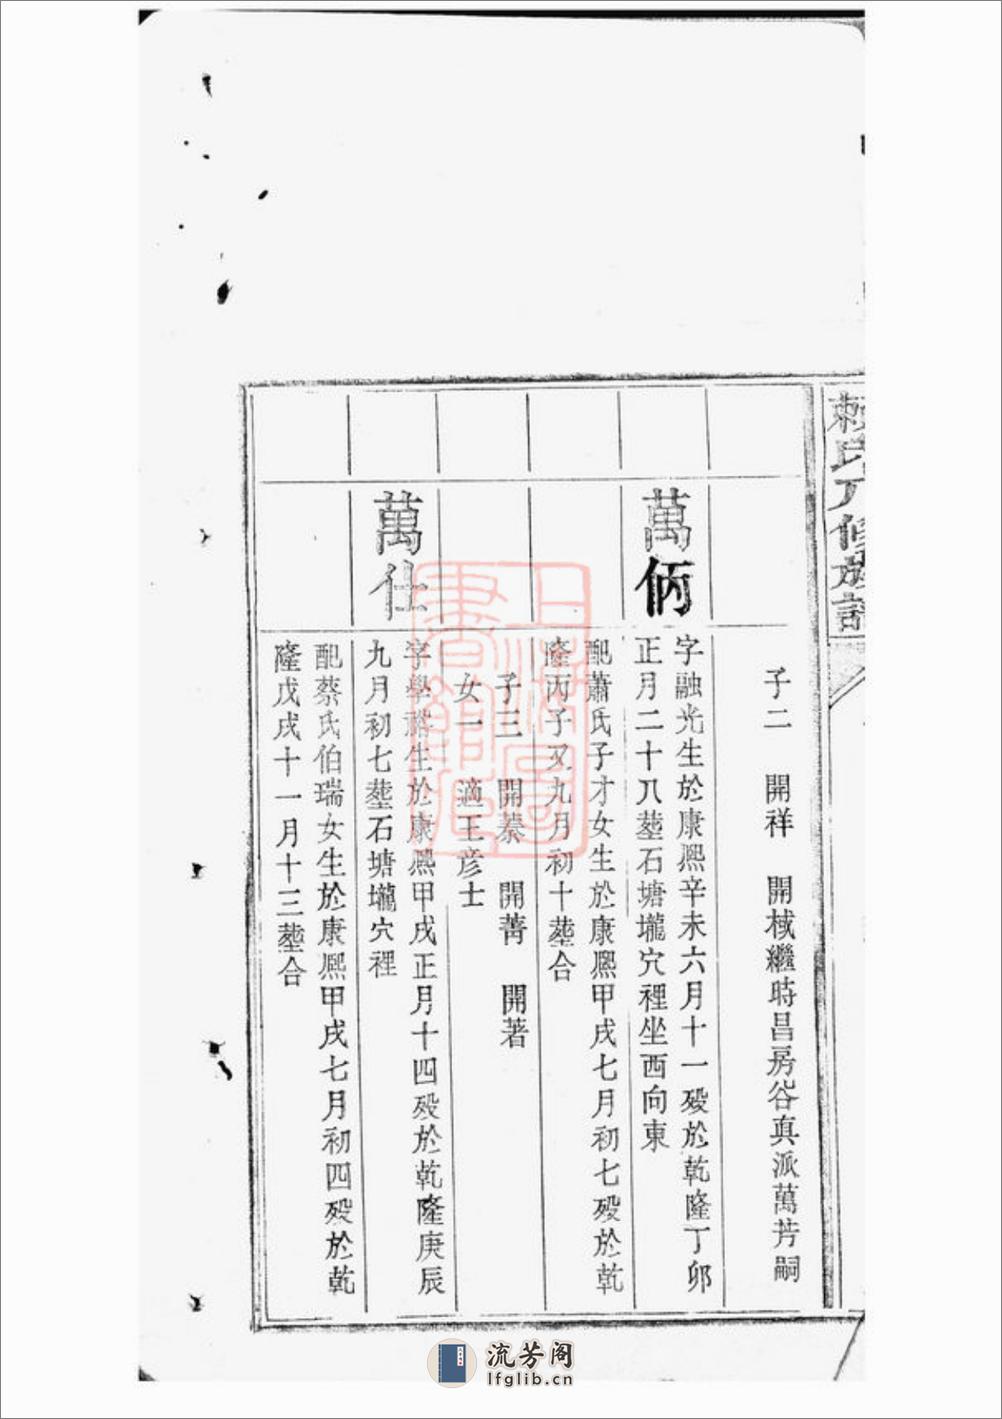 賴氏八修族譜
子二 開祥 開棫繼時昌房谷真派萬芳嗣
萬炳
字融光生於康熙辛未六月十一殁於乾隆丁卯
正月二十八塟石塘壠穴裡坐西向東
配蕭氏子才女生於康熙甲戌七月初七殁於乾
隆丙子又九月初十塟合
子三 開蓁 開菁 開著
女一 適王彦士
萬仕
字學 生於康熙甲戌正月十四殁於乾隆庚辰
九月初七塟石塘壠穴裡
配蔡氏伯瑞女生於康熙甲戌七月初四殁於乾
隆戊戌十一月十三塟合
上海圖書館藏
流芳阁
lfglib.cn